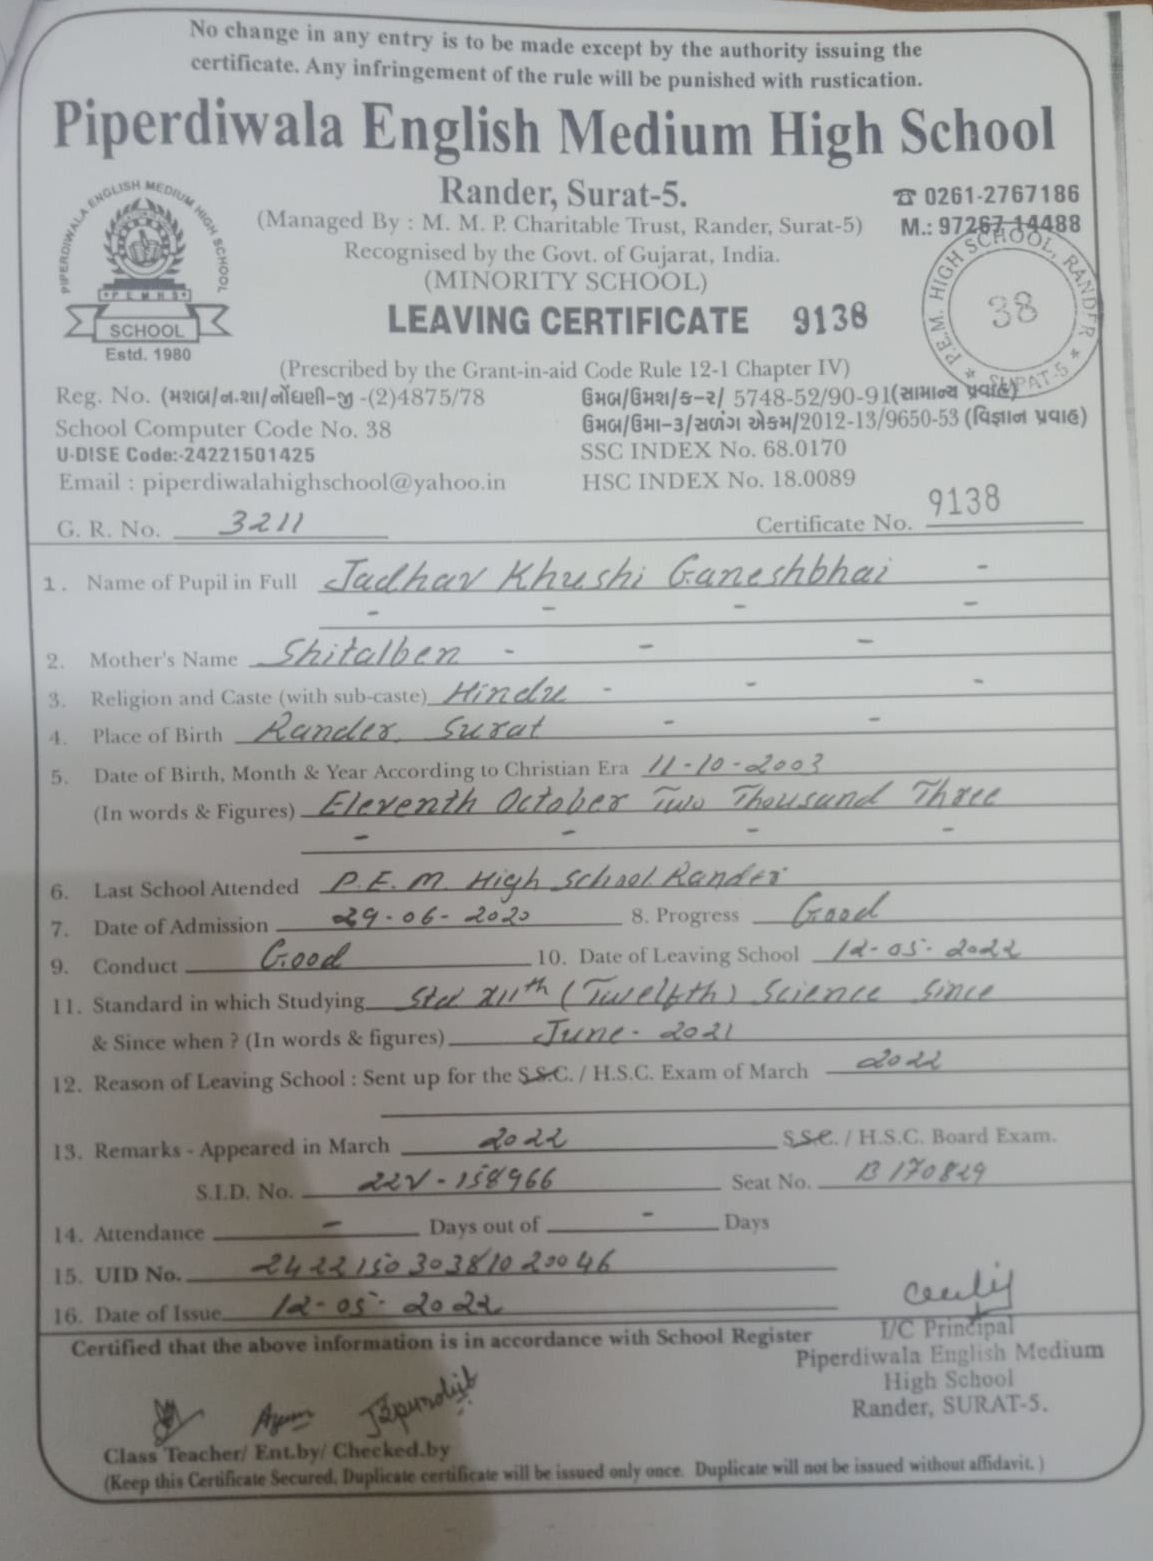 No change in any entry is to be made except by the authority issuing the
certificate. Any infringement of the rule will be punished with rustication.
Piperdiwala English Medium High School
PIPERDIWALA ENGLISH MEDIUM HIGH SCHOOL
P E M H S
SCHOOL
Estd. 1980
Rander, Surat-5.
☎ 0261-2767186
(Managed By : M. M. P. Charitable Trust, Rander, Surat-5)
M.: 97267-14488
Recognised by the Govt. of Gujarat, India.
(MINORITY SCHOOL)
P.E.M. HIGH SCHOOL, RANDER * SURAT-5 *
38
LEAVING CERTIFICATE 9138
(Prescribed by the Grant-in-aid Code Rule 12-1 Chapter IV)
Reg. No. (મશબ/ન.શા/નોંધણી-જી -(2)4875/78
ઉમબ/ઉમશ/ક-ર/ 5748-52/90-91(સામાન્ય પ્રવાહ)
School Computer Code No. 38
ઉમબ/ઉમા-૩/સળંગ એકમ/2012-13/9650-53 (વિજ્ઞાન પ્રવાહ)
U-DISE Code:-24221501425
SSC INDEX No. 68.0170
Email : piperdiwalahighschool@yahoo.in
HSC INDEX No. 18.0089
G. R. No. 3211
Certificate No. 9138
1. Name of Pupil in Full Jadhav Khushi Ganeshbhai -
- - - -
2. Mother's Name Shitalben - - -
3. Religion and Caste (with sub-caste) Hindu - - -
4. Place of Birth Rander, Surat - -
5. Date of Birth, Month & Year According to Christian Era 11-10-2003
(In words & Figures) Eleventh October Two Thousand Three
- - - -
6. Last School Attended P.E.M. High School Rander
7. Date of Admission 29-06-2020 8. Progress Good
9. Conduct Good 10. Date of Leaving School 12-05-2022
11. Standard in which Studying Std XIIth (Twelfth) Science Since
& Since when ? (In words & figures) June - 2021
12. Reason of Leaving School : Sent up for the S.S.C. / H.S.C. Exam of March 2022
13. Remarks - Appeared in March 2022 S.S.C. / H.S.C. Board Exam.
S.I.D. No. 22V-158966 Seat No. B 170829
14. Attendance - Days out of - Days
15. UID No. 242215030381020046
16. Date of Issue 12-05-2022
Certified that the above information is in accordance with School Register
I/C Principal
Piperdiwala English Medium
High School
Rander, SURAT-5.
Class Teacher/ Ent.by/ Checked.by
(Keep this Certificate Secured, Duplicate certificate will be issued only once. Duplicate will not be issued without affidavit. )